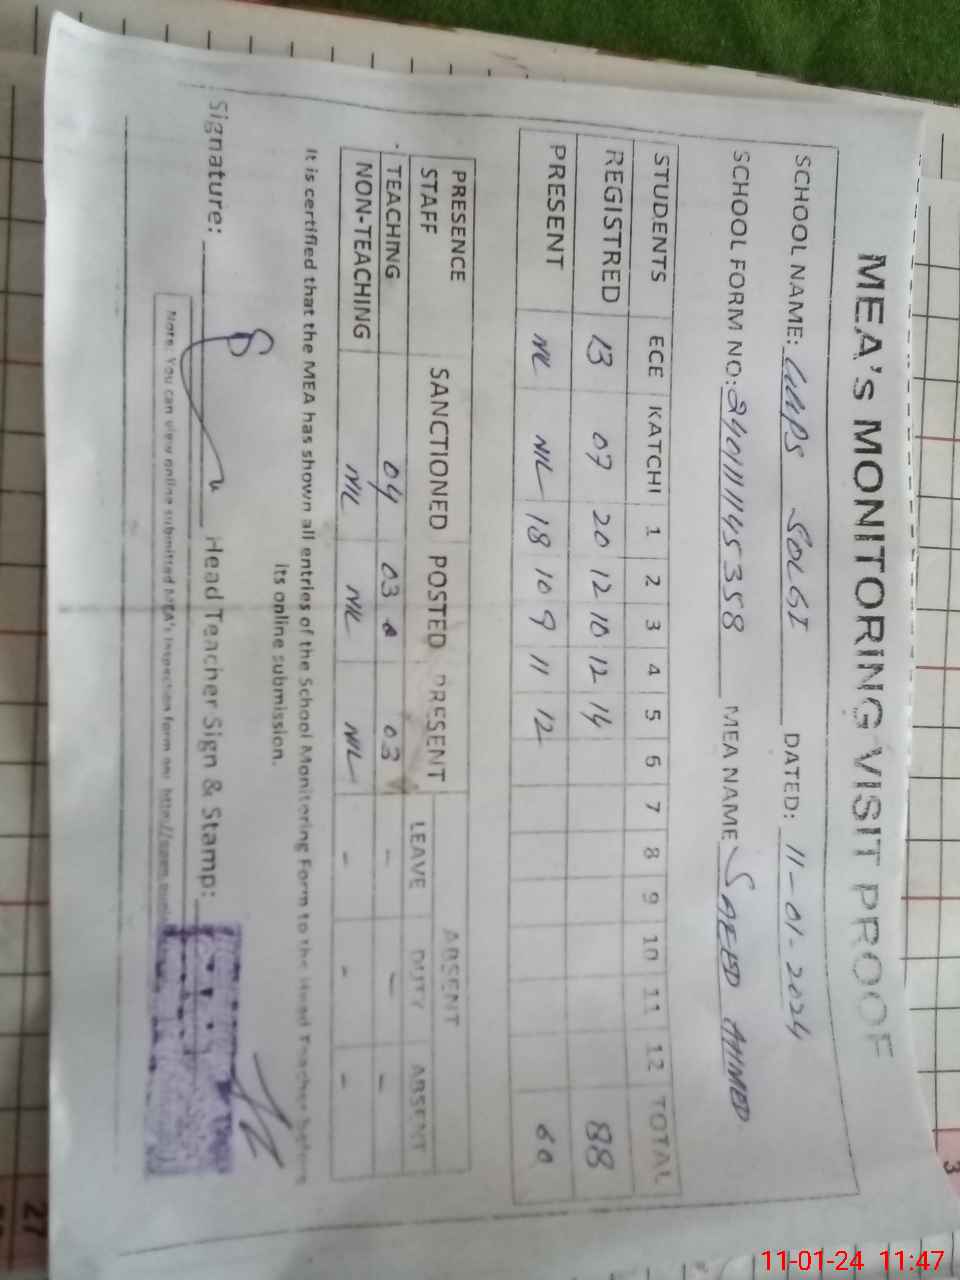 MEA's MONITORING VISIT PROOF
SCHOOL NAME: GMPS SOLGI DATED: 11-01-2024
SCHOOL FORM NO: 2401111145358 MEA NAME SAEED AHMED
STUDENTS ECE KATCHI 1 2 3 4 5 6 7 8 9 10 11 12 TOTAL
REGISTRED 13 07 20 12 10 12 14 88
PRESENT NIL NIL 18 10 9 11 12 60
PRESENCE STAFF SANCTIONED POSTED PRESENT ABSENT
LEAVE DUTY ABSENT
TEACHING 04 03 03 - - -
NON-TEACHING NIL NIL NIL - - -
It is certified that the MEA has shown all entries of the School Monitoring Form to the Head Teacher before
its online submission.
Signature: Head Teacher Sign & Stamp:
Note: You can view online submitted MEA's Inspection form on:
11-01-24 11:47
3
27